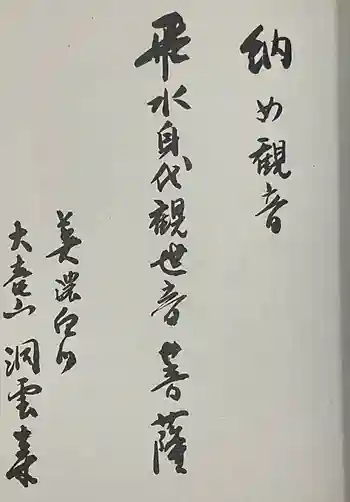 納め観音
飛水身代観世音菩薩
美濃白川
大喜山 洞雲